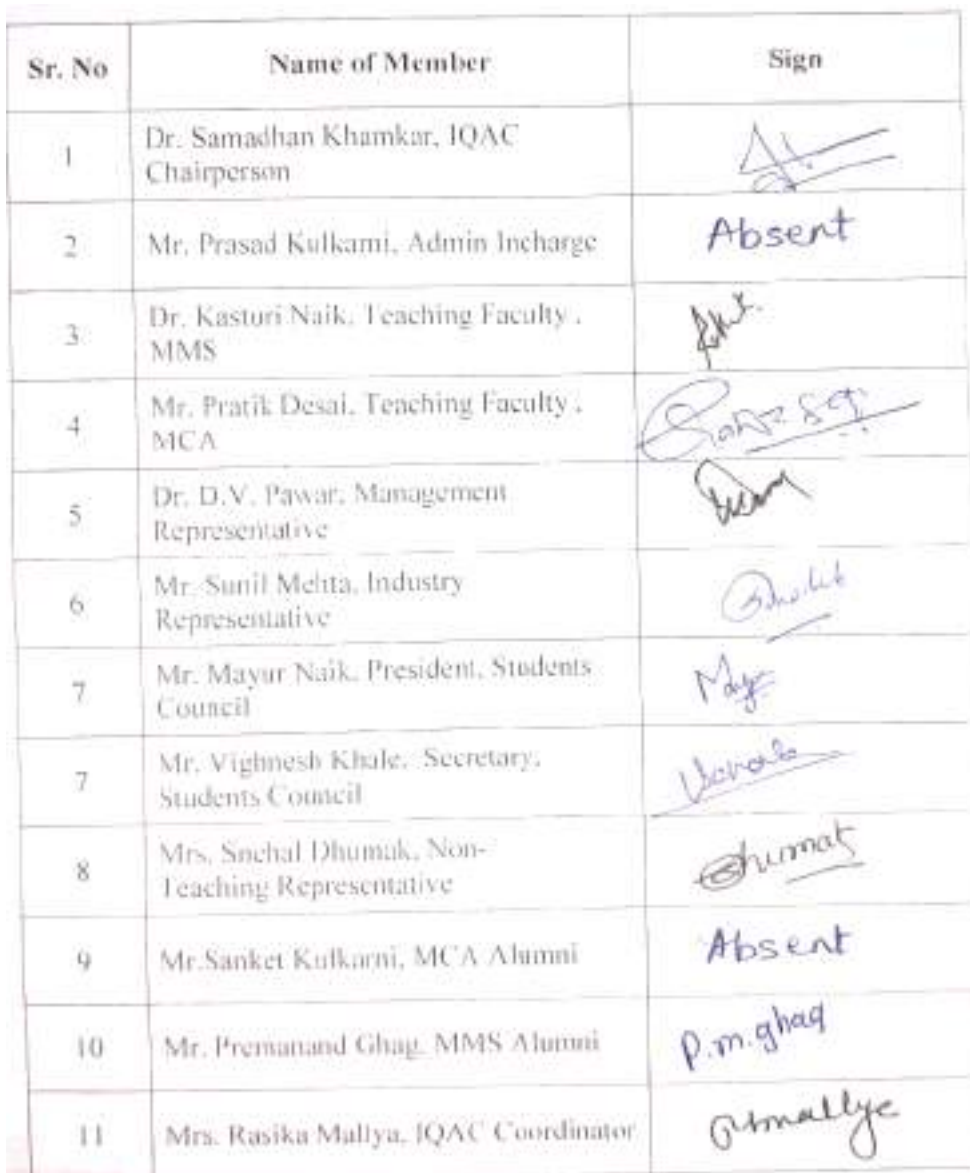 Sr. No Name of Member Sign
1 Dr. Samadhan Khamkar, IQAC
Chairperson
2 Mr. Prasad Kulkarni, Admin Incharge Absent
3 Dr. Kasturi Naik, Teaching Faculty ,
MMS
4 Mr. Pratik Desai, Teaching Faculty ,
MCA
5 Dr. D.V. Pawar, Management
Representative
6 Mr. Sunil Mehta, Industry
Representative
7 Mr. Mayur Naik, President, Students
Council
7 Mr. Vighnesh Khale, Secretary,
Students Council
8 Mrs. Snehal Dhumak, Non-
Teaching Representative
9 Mr.Sanket Kulkarni, MCA Alumni Absent
10 Mr. Premanand Ghag, MMS Alumni P.m.ghag
11 Mrs. Rasika Mallya, IQAC Coordinator